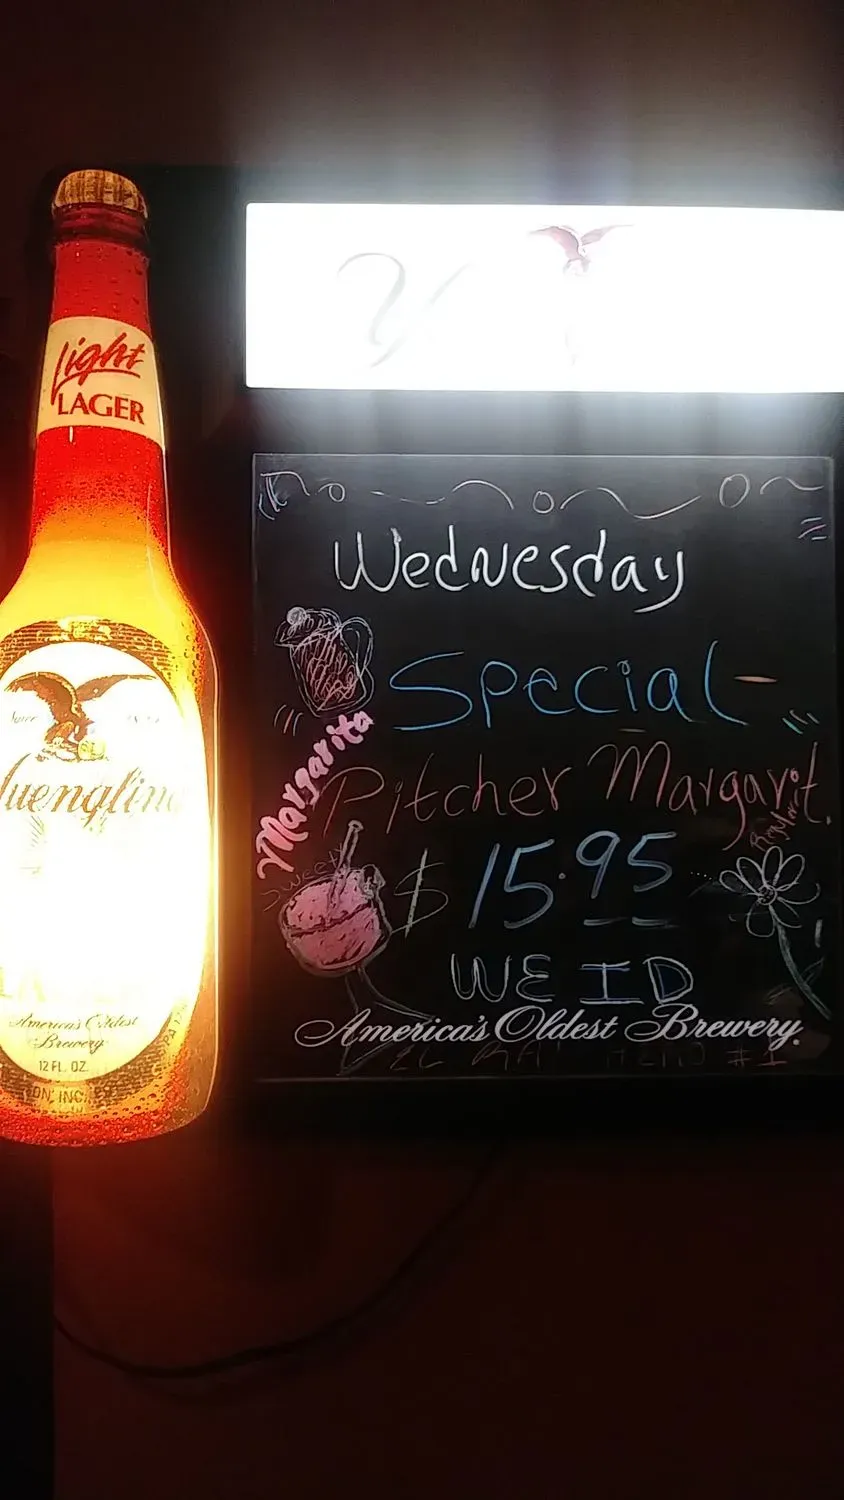 Light
LAGER
Yuengling
America's Oldest
Brewery
12 FL. OZ.
ON, INC.
Y
Wednesday
Special-
Margarita
Pitcher Margarit.
Regular
Sweet
$15.95
WE ID
America's Oldest Brewery.
#1